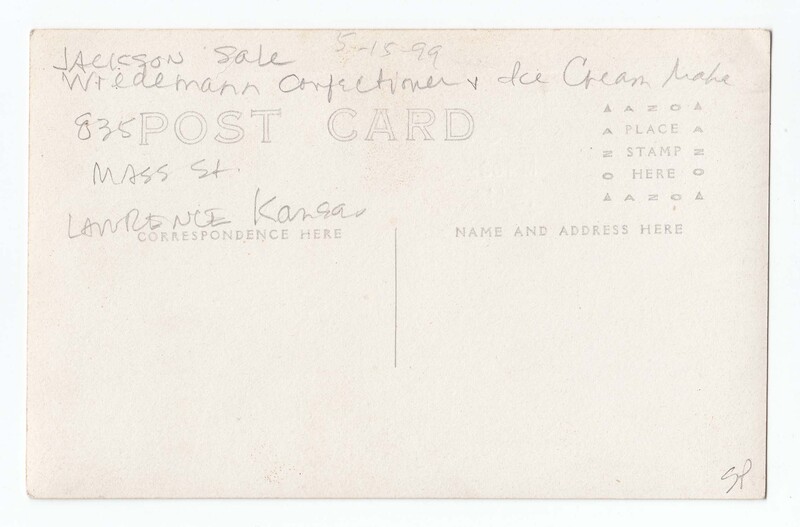 JACKSON Sale 5-15-99
Wiedemann Confectioner & Ice Cream Make
835 POST CARD
MASS St.
LAWRENCE Kansas
CORRESPONDENCE HERE
NAME AND ADDRESS HERE
▲ A Z O ▲
A PLACE A
Z STAMP Z
O HERE O
▲ A Z O ▲